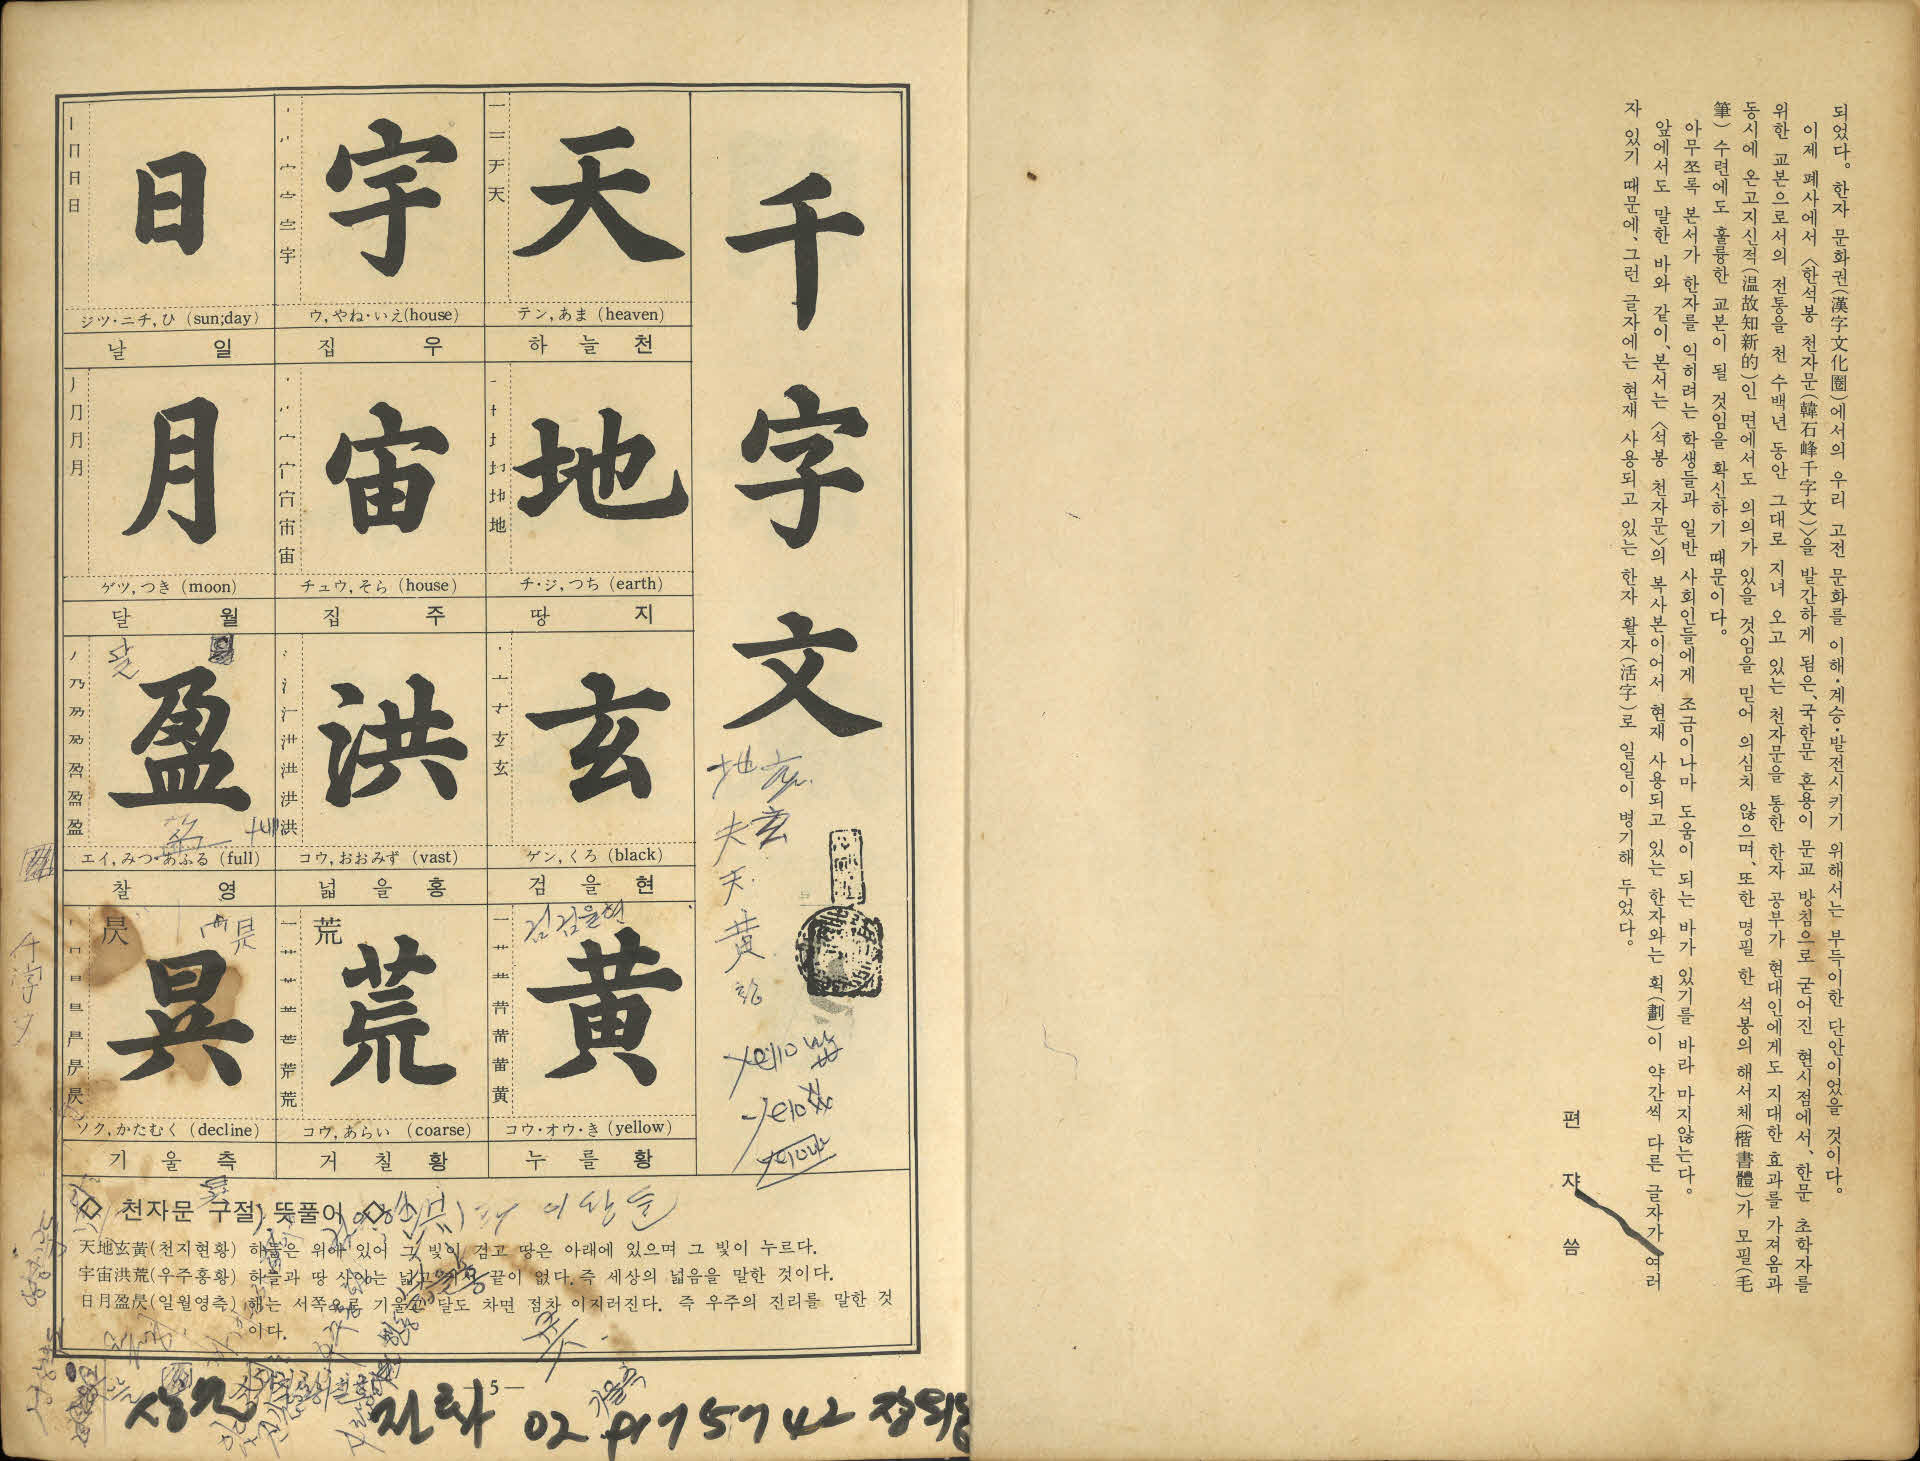 되었다。 한자 문화권(漢字文化圈)에서의 우리 고전 문화를 이해·계승·발전시키기 위해서는 부득이한 단안이었을 것이다。
이제 폐사에서 〈한석봉 천자문(韓石峰千字文)〉을 발간하게 됨은、국한문 혼용이 문교 방침으로 굳어진 현시점에서、한문 초학자를
위한 교본으로서의 전통을 천 수백년 동안 그대로 지녀 오고 있는 천자문을 통한 한자 공부가 현대인에게도 지대한 효과를 가져옴과
동시에 온고지신적(温故知新的)인 면에서도 의의가 있을 것임을 믿어 의심치 않으며、또한 명필 한 석봉의 해서체(楷書體)가 모필(毛
筆) 수련에도 훌륭한 교본이 될 것임을 확신하기 때문이다。
아무쪼록 본서가 한자를 익히려는 학생들과 일반 사회인들에게 조금이나마 도움이 되는 바가 있기를 바라 마지않는다。
앞에서도 말한 바와 같이、본서는 〈석봉 천자문〉의 복사본이어서 현재 사용되고 있는 한자와는 획(劃)이 약간씩 다른 글자가 여러
자 있기 때문에、그런 글자에는 현재 사용되고 있는 한자 활자(活字)로 일일이 병기해 두었다。
편 쟈 씀
千字文
一 二 于 天
天
テン, あま (heaven)
하늘 천
地
チ・ジ, つち (earth)
땅 지
玄
ゲン, くろ (black)
검을 현
黃
コウ・オウ・き (yellow)
누를 황
宇
ウ, やね・いえ(house)
집 우
宙
チュウ, そら (house)
집 주
洪
コウ, おおみず (vast)
넓을 홍
荒
荒
コウ, あらい (coarse)
거칠 황
日
ジツ・ニチ, ひ (sun;day)
날 일
月
ゲツ, つき (moon)
달 월
盈
エイ, みつ・あふる (full)
찰 영
昃
昃
ソク, かたむく (decline)
기울 측
地
夫 玄
天
黄
검 검을현
달
◇ 천자문 구절 뜻풀이 ◇
天地玄黃(천지현황) 하늘은 위에 있어 그 빛이 검고 땅은 아래에 있으며 그 빛이 누르다.
宇宙洪荒(우주홍황) 하늘과 땅 사이는 넓고 커서 끝이 없다. 즉 세상의 넓음을 말한 것이다.
日月盈昃(일월영측) 해는 서쪽으로 기울고 달도 차면 점차 이지러진다. 즉 우주의 진리를 말한 것
이다.
5 —
전화 02 917 5742